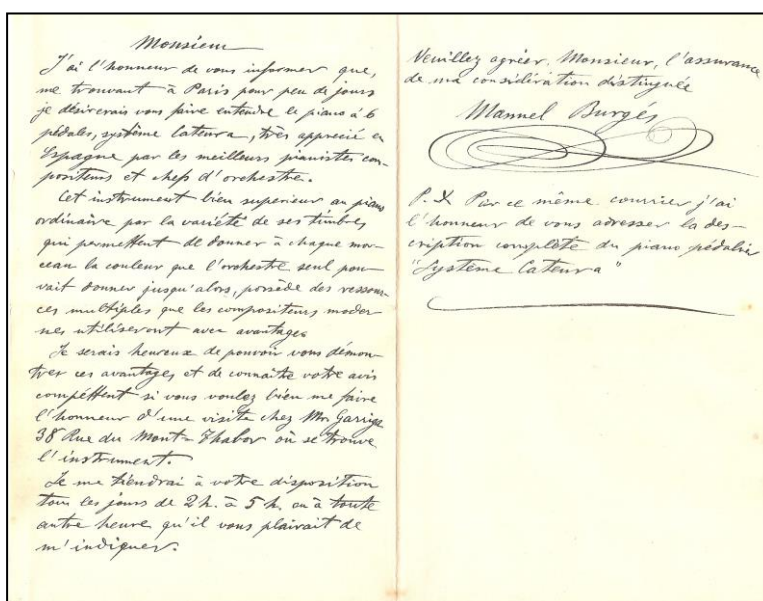 Monsieur
J'ai l'honneur de vous informer que,
me trouvant à Paris pour peu de jours
je désirerais vous faire entendre le piano à 6
pédales, système Cateura, très apprecié en
Espagne par les meilleurs pianistes com-
positeurs et chefs d'orchestre.
Cet instrument bien superieur au piano
ordinaire par la variété de ses timbres
qui permettent de donner à chaque mor-
ceau la couleur que l'orchestre seul pou-
vait donner jusqu'alors, possède des ressour-
ces multiples que les compositeurs moder-
nes utiliseront avec avantages
Je serais heureux de pouvoir vous démon-
trer ces avantages et de connaître votre avis
compéttent si vous voulez bien me faire
l'honneur d'une visite chez Mr. Garriga
38 Rue du Mont-Thabor où se trouve
l'instrument.
Je me tiendrai à votre disposition
tous les jours de 2 h. à 5 h. ou à toute
autre heure qu'il vous plairait de
m'indiquer.
Veuillez agréer, Monsieur, l'assurance
de ma considération distinguée
Manuel Burgés
P. S. Par ce même courrier j'ai
l'honneur de vous adresser la des-
cription complète du piano pédalier
"Système Cateura"